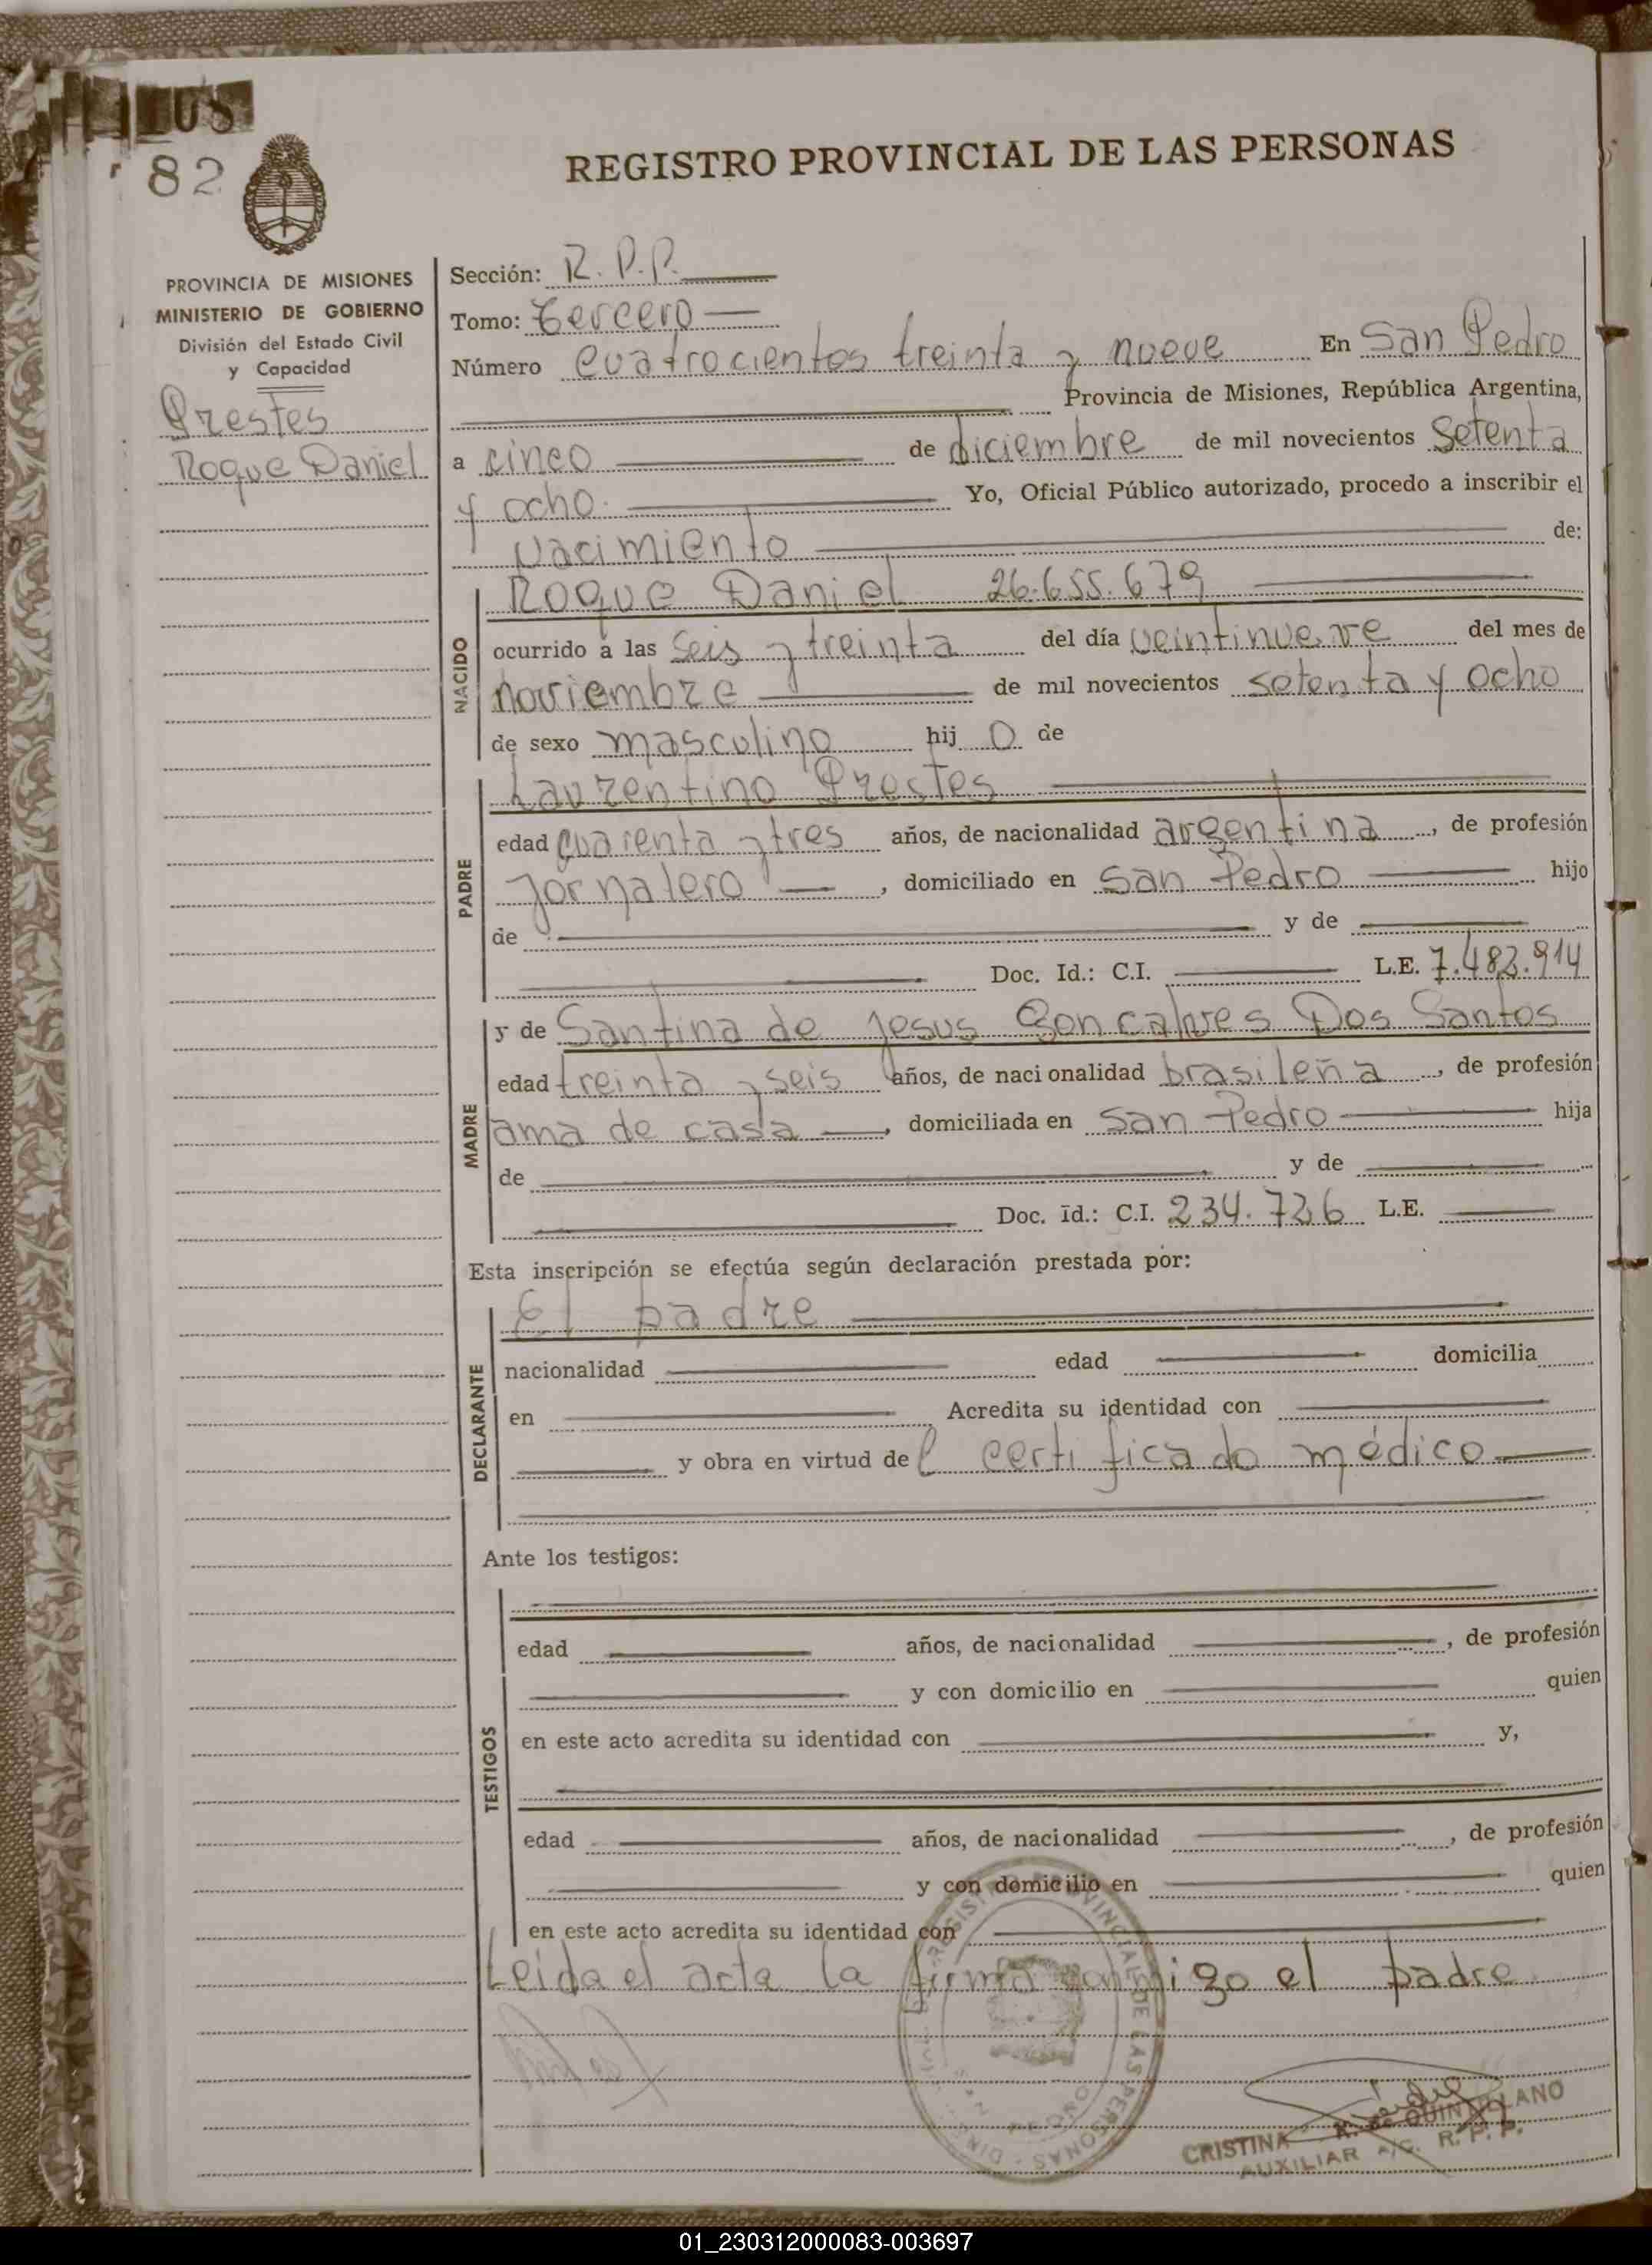 108
82
REGISTRO PROVINCIAL DE LAS PERSONAS
PROVINCIA DE MISIONES
MINISTERIO DE GOBIERNO
División del Estado Civil
y Capacidad
Prestes
Roque Daniel
Sección: R. P. P.
Tomo: Tercero
Número cuatrocientos treinta y nueve En San Pedro
Provincia de Misiones, República Argentina,
a cinco de diciembre de mil novecientos setenta
y ocho. Yo, Oficial Público autorizado, procedo a inscribir el
nacimiento de:
NACIDO
Roque Daniel 26.655.679
ocurrido a las seis y treinta del día veintinueve del mes de
noviembre de mil novecientos setenta y ocho
de sexo masculino hij o de
PADRE
Laurentino Prestes
edad cuarenta y tres años, de nacionalidad argentina, de profesión
Jornalero, domiciliado en San Pedro hijo
de y de
Doc. Id.: C.I. L.E. 7.483.914
MADRE
y de Santina de Jesus Goncalves Dos Santos
edad treinta y seis años, de nacionalidad brasileña, de profesión
ama de casa, domiciliada en San Pedro hija
de y de
Doc. Id.: C.I. 234.726 L.E.
Esta inscripción se efectúa según declaración prestada por:
DECLARANTE
El padre
nacionalidad edad domicilia
en Acredita su identidad con
y obra en virtud de l certificado médico
Ante los testigos:
TESTIGOS
edad años, de nacionalidad , de profesión
y con domicilio en quien
en este acto acredita su identidad con y,
edad años, de nacionalidad , de profesión
y con domicilio en quien
en este acto acredita su identidad con
Leida el acta la firma conmigo el padre
CRISTINA QUINTILLANO
AUXILIAR A/C. R. P. P.
01_230312000083-003697